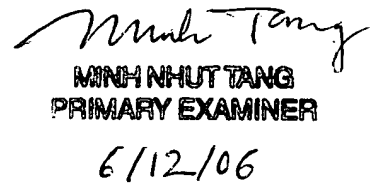 Minh Tang
MINH NHUT TANG
PRIMARY EXAMINER
6/12/06